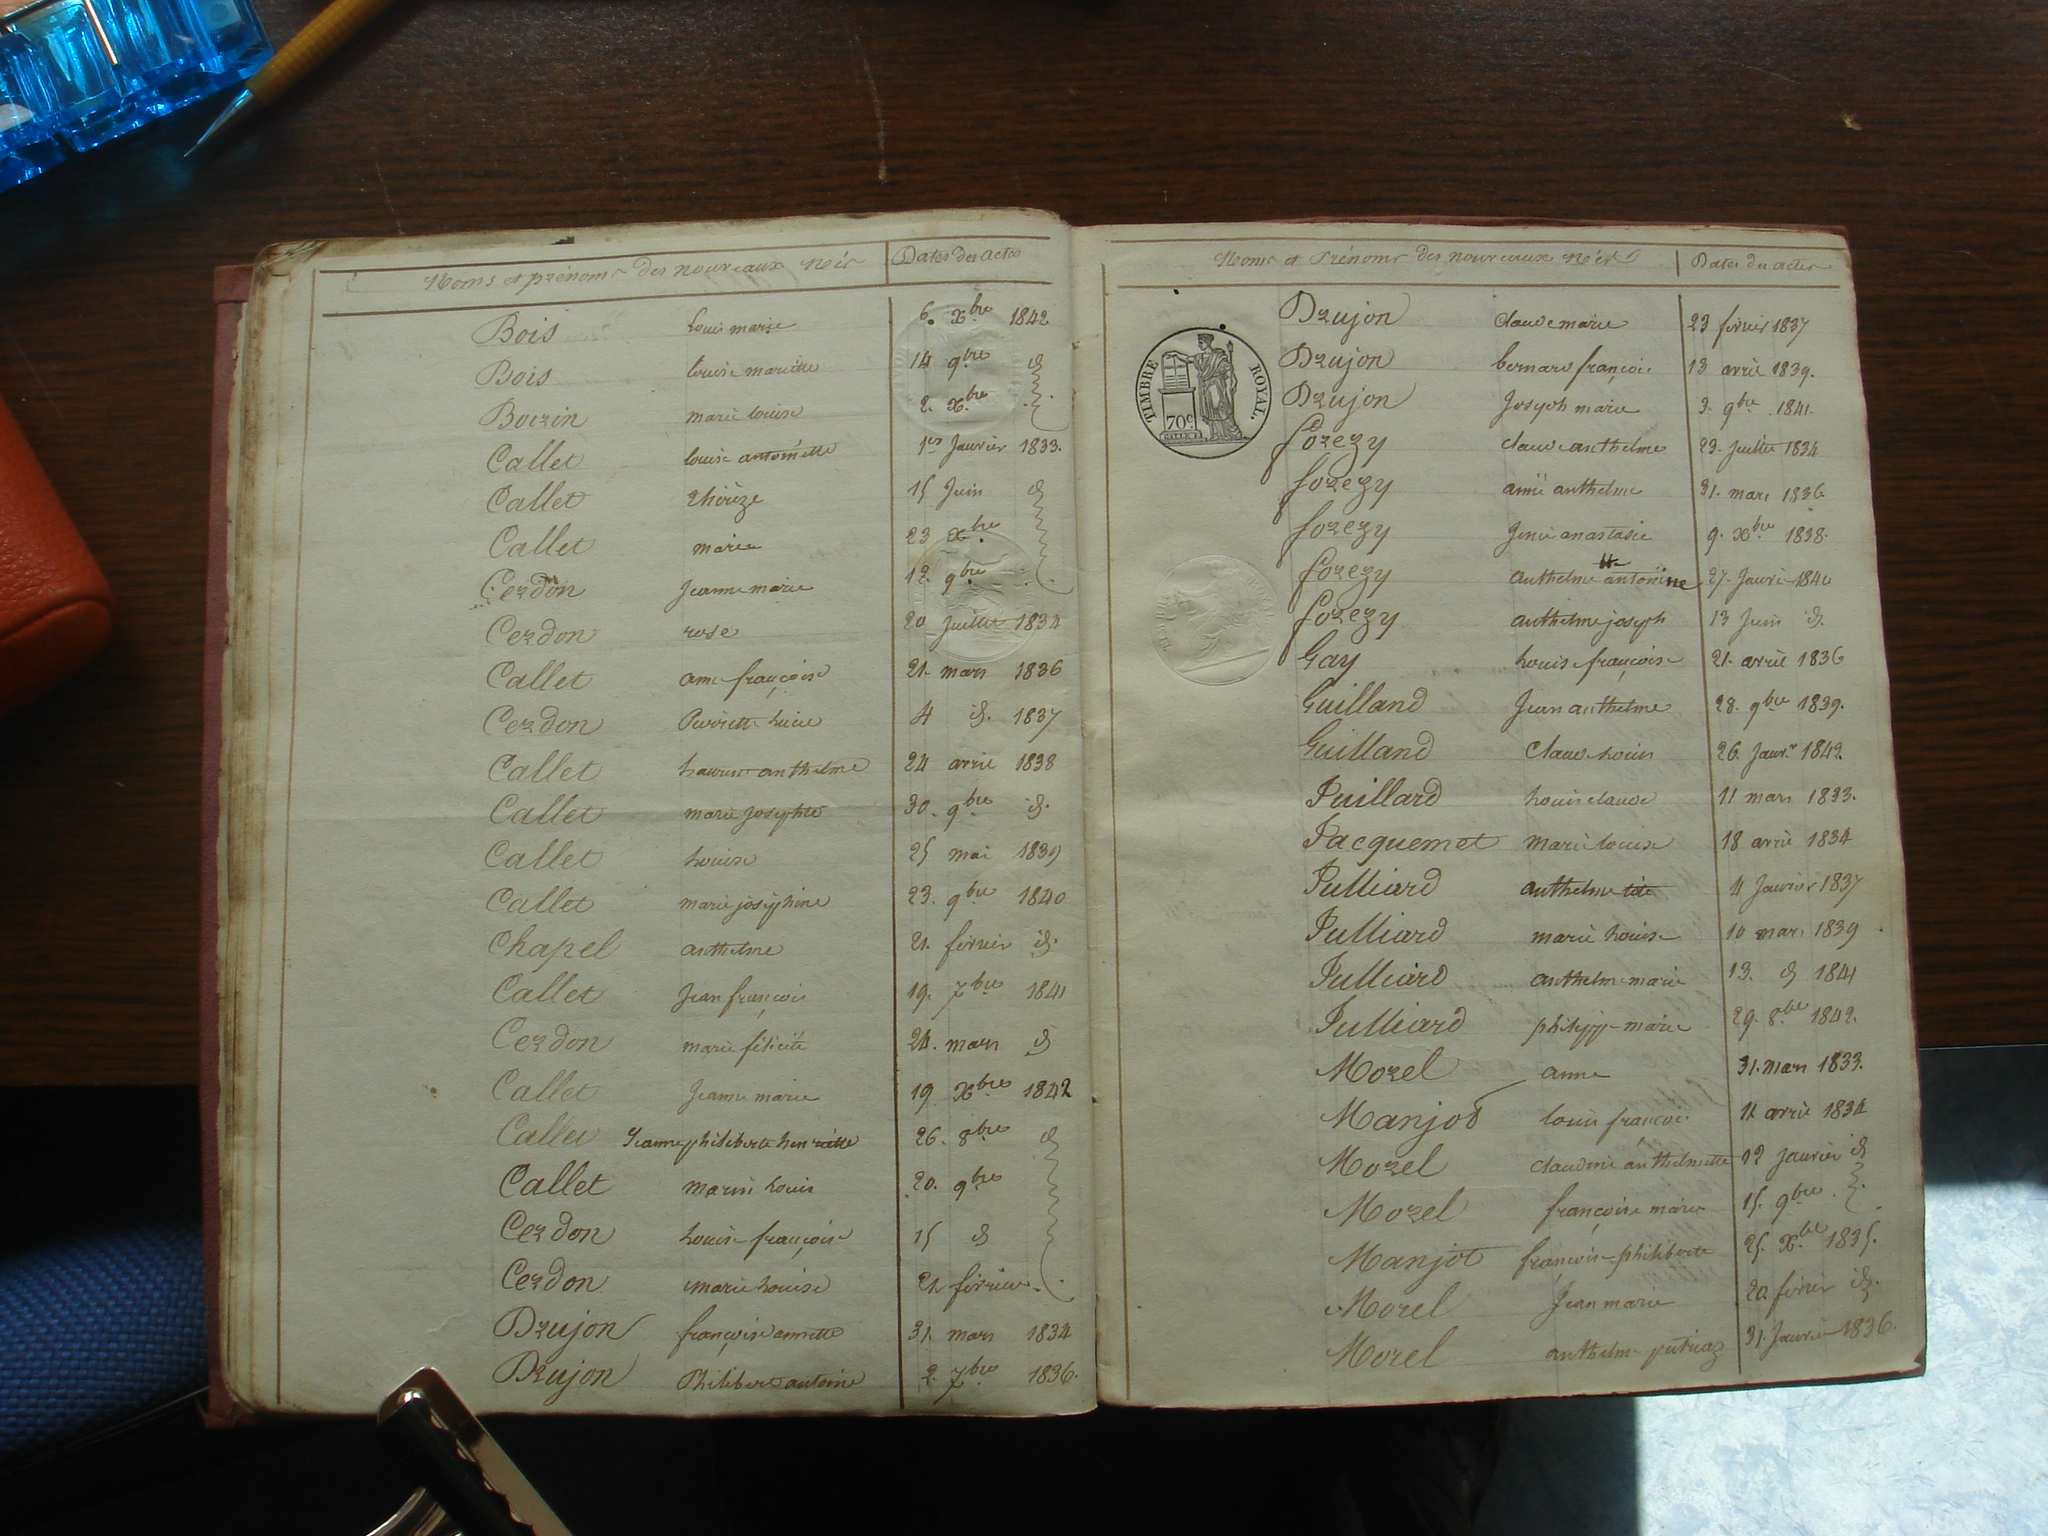 Noms et prénoms des nouveaux Nés Dates des actes
Bois Louis marie 6. Xbre 1842
Bois Louise mariette 14 9bre id
Boirin marie louise 2. Xbre
Callet louise antoinette 1er Janvier 1833.
Callet thérèze 15 Juin id
Callet marie 23 Xbre
Cerdon Jeanne marie 12. 9bre
Cerdon rose 20 Juillet 1834
Callet ame françoise 21. mars 1836
Cerdon Pierrette Lucie 4 id. 1837
Callet Laurent anthelme 24 avril 1838
Callet marie Josephte 30. 9bre id.
Callet Louise 25 mai 1839
Callet marie joséphine 23. 9bre 1840
Chapel anthelme 21. février id.
Callet Jean françois 19. 7bre 1841
Cerdon marie félicité 24. mars id
Callet Jeanne marie 19 Xbre 1842
Callet Jeanne philiberte henriette 26. 8bre id
Callet marin Louis 20. 9bre
Cerdon Louise françoise 15 id
Cerdon marie Louise 21 février.
Drujon françoise annette 31. mars 1834
Drujon Philibert antoine 2. 7bre 1836.
Noms et Prénoms des nouveaux Nés Dates des actes
TIMBRE ROYAL.
70c.
Drujon claude marie 23 février 1837
Drujon bernard françois 13 avril 1839.
Drujon Joseph marie 3. 9bre 1841.
forezy claude anthelme 23. Juillet 1834
forezy aimé anthelme 31. mars 1836
forezy Jenie anastasie 9. Xbre 1838.
forezy anthelme antoine 27. Janvier 1840
forezy anthelme joseph 13 Juin id.
Gay Louise françoise 21. avril 1836
Guilland Jean anthelme 28. 9bre 1839.
Guilland Claude Louis 26. Janvr 1842.
Juillard Louis claude 11 mars 1833.
Jacquemet marie louise 18 avril 1834
Julliard anthelme 4 Janvier 1837
Julliard marie Louise 10 mars 1839
Julliard anthelme marie 13. id 1841
Julliard philippe marie 29. 8bre 1842.
Morel anne 31. mars 1833.
Manjot louis françois 11 avril 1834
Morel claudine anthelmette 12 janvier id
Morel françoise marie 15. 9bre
Manjot françoise philiberte 25. Xbre 1835.
Morel Jean marie 20. février id.
Morel anthelme 31. Janvier 1836.